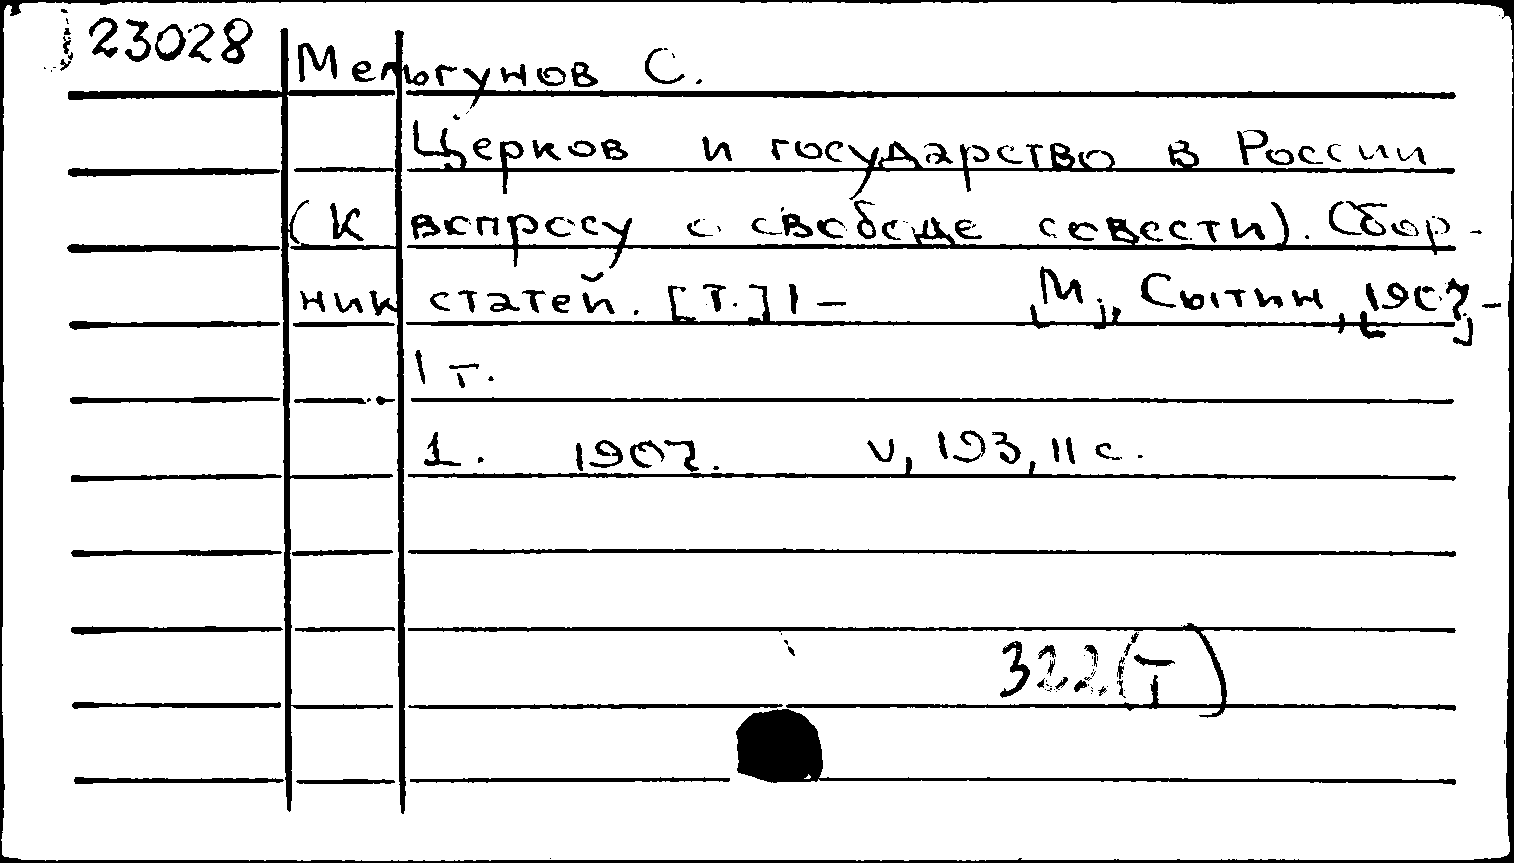 23028
Мельгунов С.
Церков и государство в России
(к вопросу о свободе совести). Сбор-
ник статей. [Т.] 1 – [М.], Сытин, [1907]–
1 т.
1. 1907. V, 193, II с.
322(Т)